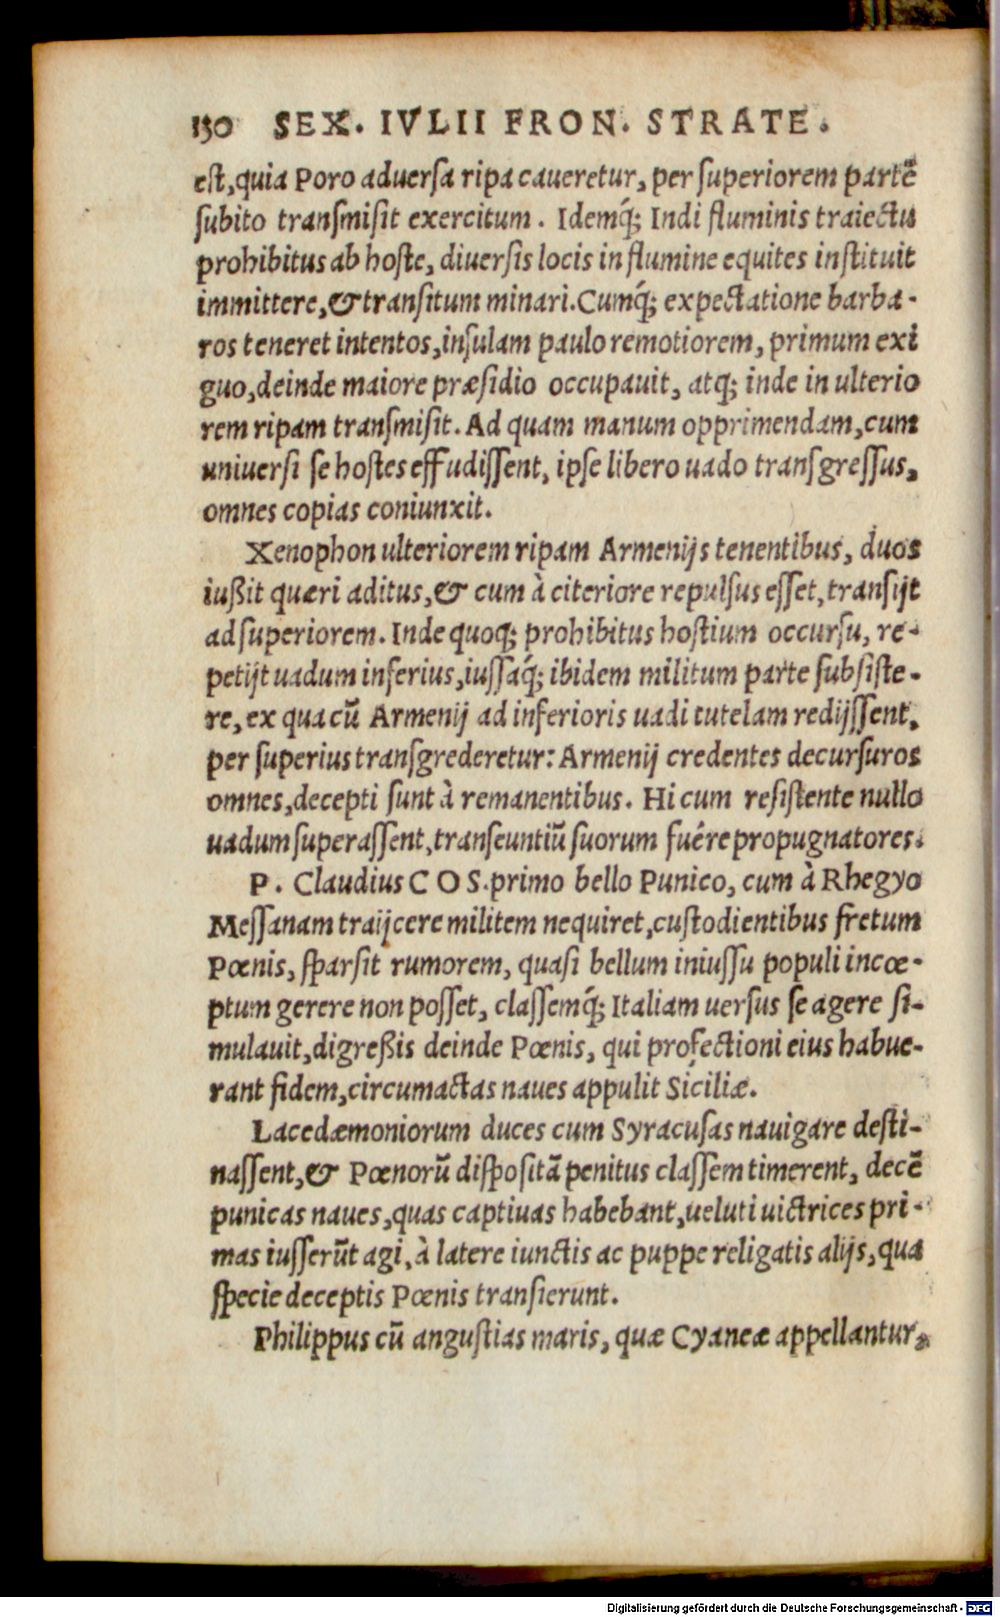 130 SEX. IVLII FRON. STRATE.
est, quia Poro aduersa ripa caueretur, per superiorem partẽ
subito transmisit exercitum. Idemq́; Indi fluminis traiectu
prohibitus ab hoste, diuersis locis in flumine equites instituit
immittere, & transitum minari. Cumq́; expectatione barba-
ros teneret intentos, insulam paulo remotiorem, primum exi
guo, deinde maiore præsidio occupauit, atq; inde in ulterio
rem ripam transmisit. Ad quam manum opprimendam, cum
uniuersi se hostes effudissent, ipse libero uado transgressus,
omnes copias coniunxit.
Xenophon ulteriorem ripam Armenijs tenentibus, duos
iußit quæri aditus, & cum à citeriore repulsus esset, transijt
ad superiorem. Inde quoq; prohibitus hostium occursu, re-
petijt uadum inferius, iussaq́; ibidem militum parte subsiste-
re, ex qua cũ Armenij ad inferioris uadi tutelam redijssent,
per superius transgrederetur: Armenij credentes decursuros
omnes, decepti sunt à remanentibus. Hi cum resistente nullo
uadum superassent, transeuntiũ suorum fuére propugnatores.
P. Claudius COS. primo bello Punico, cum à Rhegyo
Messanam traijcere militem nequiret, custodientibus fretum
Pœnis, sparsit rumorem, quasi bellum iniussu populi incœ-
ptum gerere non posset, classemq́; Italiam uersus se agere si-
mulauit, digreßis deinde Pœnis, qui profectioni eius habue-
rant fidem, circumactas naues appulit Siciliæ.
Lacedæmoniorum duces cum Syracusas nauigare desti-
nassent, & Pœnorũ dispositã penitus classem timerent, decẽ
punicas naues, quas captiuas habebant, ueluti uictrices pri-
mas iusserũt agi, à latere iunctis ac puppe religatis alijs, qua
specie deceptis Pœnis transierunt.
Philippus cũ angustias maris, quæ Cyaneæ appellantur,
Digitalisierung gefördert durch die Deutsche Forschungsgemeinschaft - DFG